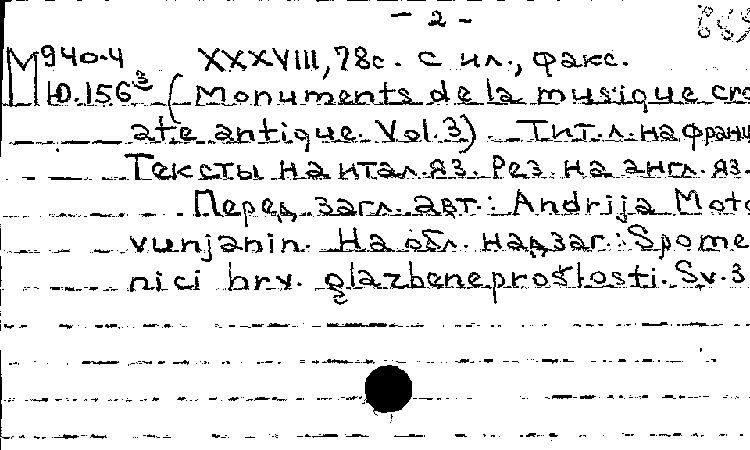 - 2 -
М940.4 XXXVIII, 78с. с ил., факс.
Ю.156³ (Monuments de la musique cro
ate antique. Vol.3). Тит.л. на франц
Тексты на итал. яз. Рез. на англ. яз.
Перед загл. авт.: Andrija Moto
vunjanin. На обл. надзаг.: Spome
nici hrv. glazbene prošlosti. Sv.3